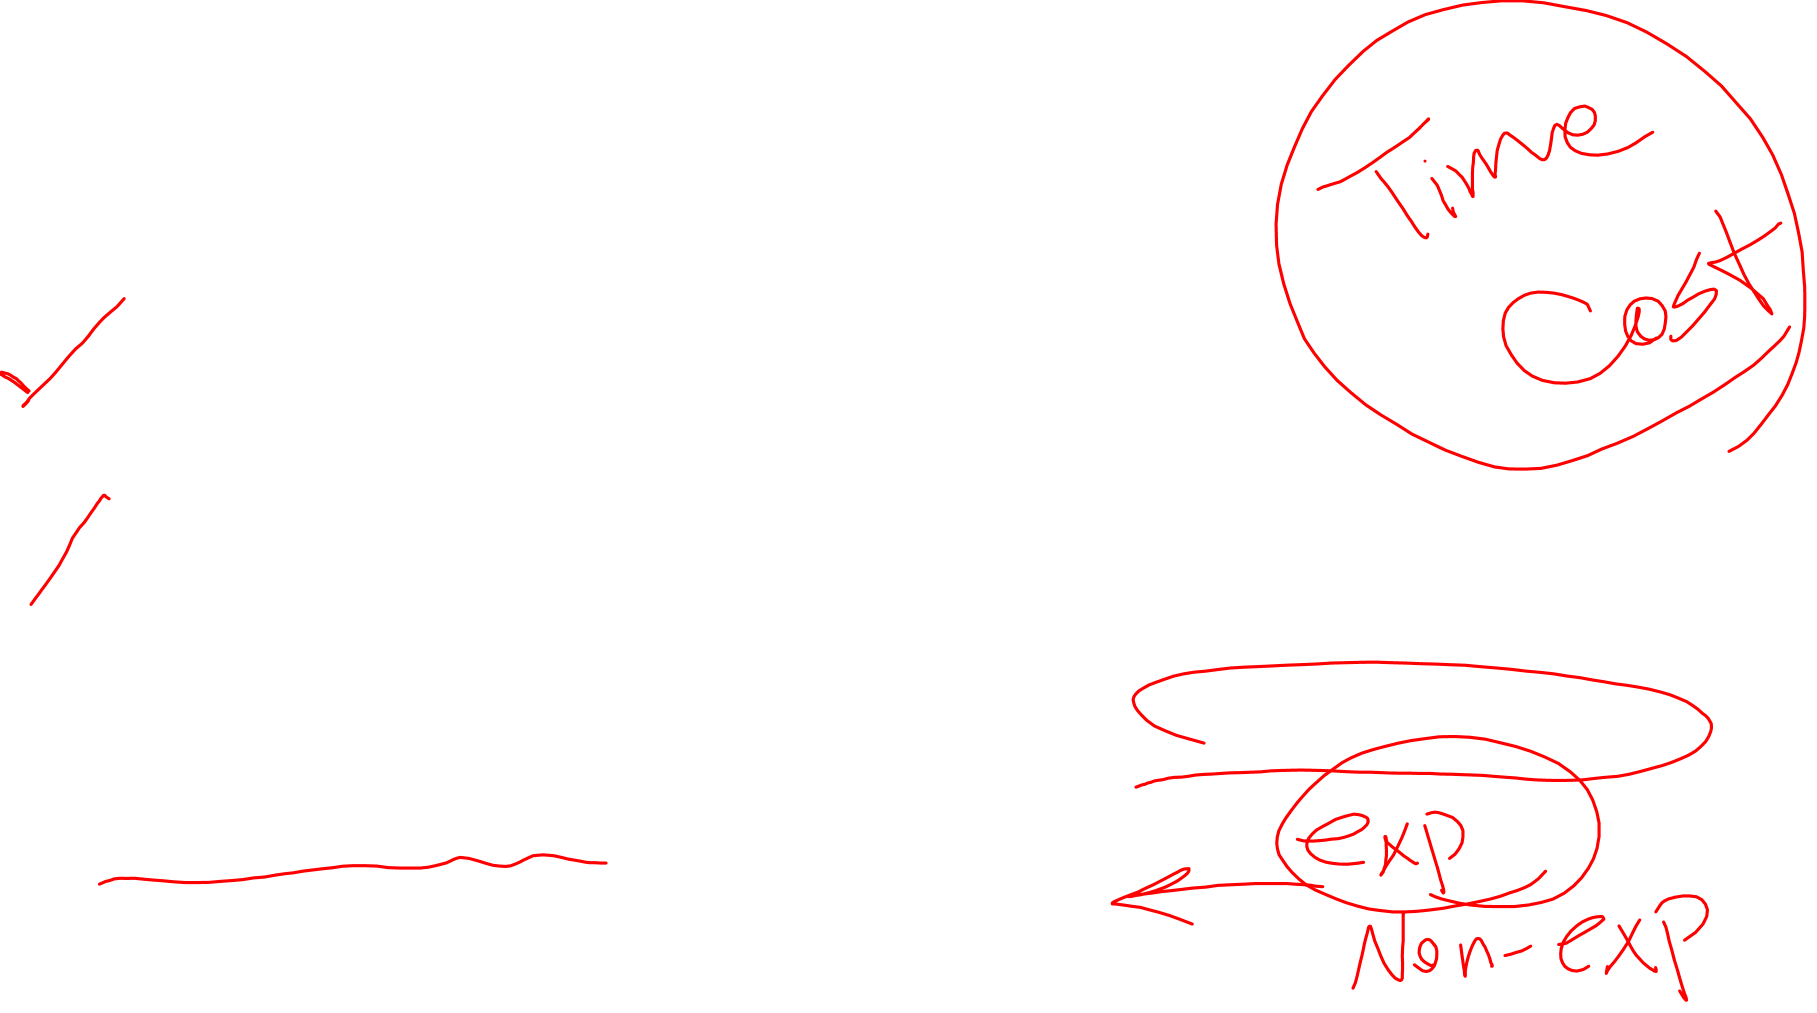 Time
Cost
exp
Non-exp